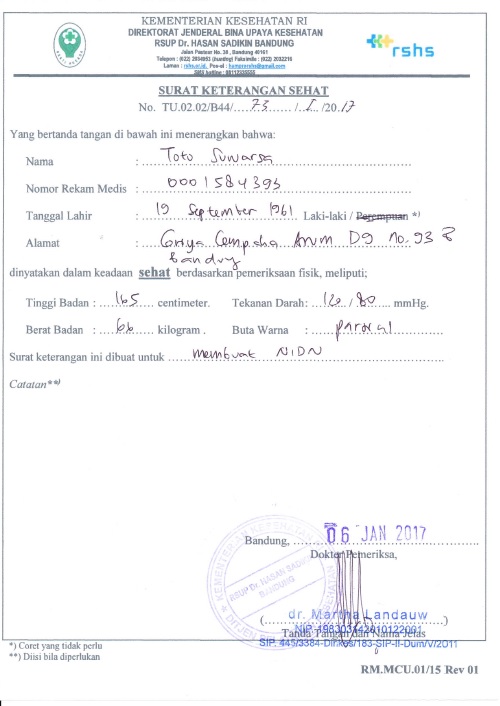 KEMENTERIAN KESEHATAN RI
DIREKTORAT JENDERAL BINA UPAYA KESEHATAN
RSUP Dr. HASAN SADIKIN BANDUNG
Jalan Pasteur No. 38 , Bandung 40161
Telepon : (022) 2034953 (hunting) Faksimile : (022) 2032216
SMS hotline : 08112335555
rshs
SURAT KETERANGAN SEHAT
No. TU.02.02/B44/ 73 / I /2017
Yang bertanda tangan di bawah ini menerangkan bahwa:
Nama : Toto Suwarsa
Nomor Rekam Medis : 0001584395
Tanggal Lahir : 19 September 1961 Laki-laki / Perempuan *)
Alamat : Griya Cempaka Arum D9 No. 93
Bandung
dinyatakan dalam keadaan sehat berdasarkan pemeriksaan fisik, meliputi;
Tinggi Badan : 165 centimeter. Tekanan Darah: 120 / 80 mmHg.
Berat Badan : 66 kilogram . Buta Warna : parsial
Surat keterangan ini dibuat untuk membuat NIDN
Catatan**)
Bandung, 06 JAN 2017
Dokter Pemeriksa,
KEMENTERIAN KESEHATAN
RSUP Dr. HASAN SADIKIN
BANDUNG
dr. Martha Landauw
Tanda Tangan dan Nama Jelas
*) Coret yang tidak perlu
**) Diisi bila diperlukan
RM.MCU.01/15 Rev 01